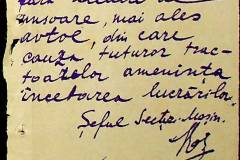 unsoare, mai ales
avtol, din care
cauza tuturor trac-
toarelor amenința
încetarea lucrărilor.
Șeful Secție-Mașin.